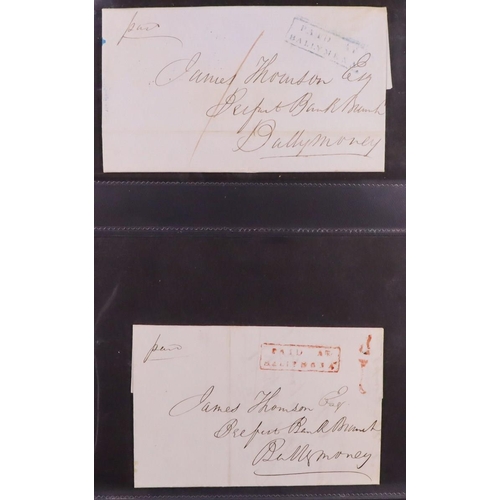 paid
PAID AT
BALLYMENA
James Thomson Esq
Belfast Bank Branch
Ballymoney
paid
PAID AT
BALLYMENA
James Thomson Esq
Belfast Bank Branch
Ballymoney